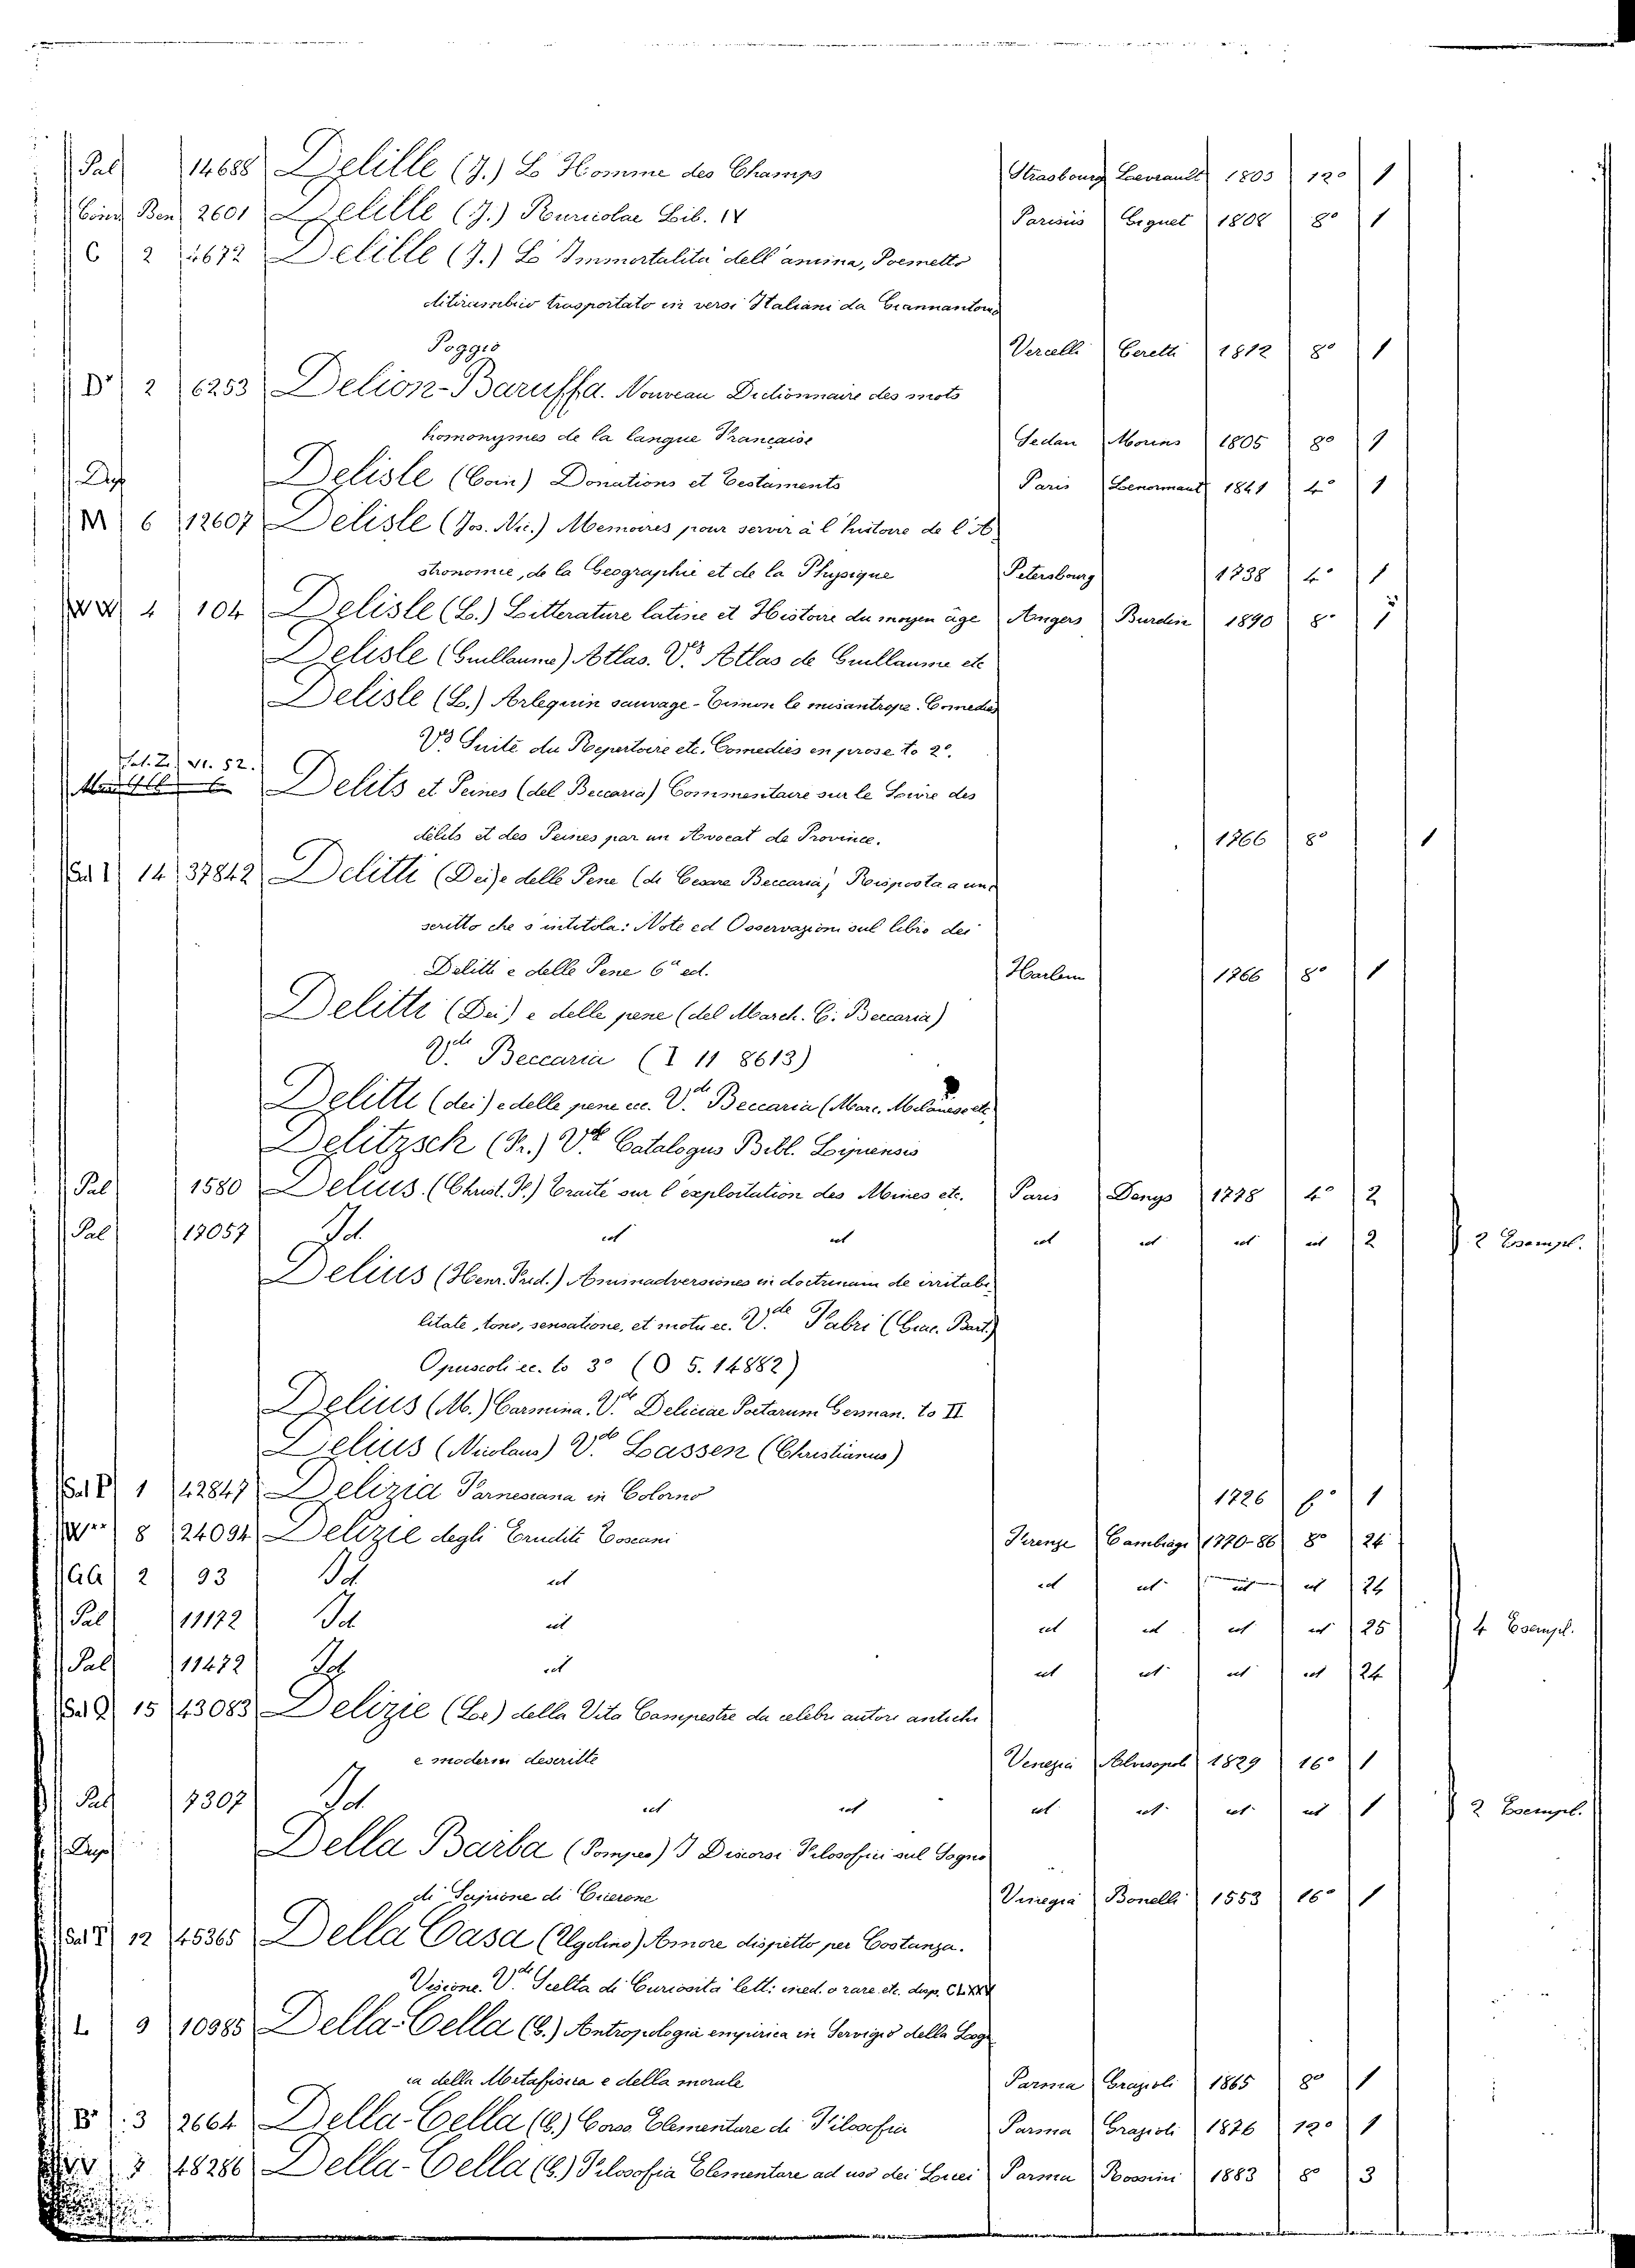 Pal 14688 Delille (J.) L'Homme des Champs Strasbourg Levrault 1803 12° 1
Ben 2601 Delille (J.) Ruricolae Lib. IV Parisiis Gignet 1808 8° 1
C 2 Delille (J.) L'Immortalita dell'anima, Poemetto
ditirambico trasportato in versi Italiani da Giannantonio
Poggio Vercelli Ceretti 1812 8° 1
D 2 6253 Delion-Baruffa. Nouveau Dictionnaire des mots
homonymes de la langue Française Sedan Morins 1805 8° 1
Dep Delisle (Coin) Donations et Testaments Paris Lenormant 1841 4° 1
M 6 12607 Delisle (Jos. Nic.) Memoires pour servir à l'histoire de l'A
stronomie, de la Geographie et de la Physique Petersbourg 1738 4° 1
4 104 Delisle (L.) Litterature latine et Histoire du moyen âge Angers Burdin 1890 8° 1
Delisle (Guillaume) Atlas. V.e Atlas de Guillaume etc
Delisle (L.) Arlequin sauvage - Timon le misantrope. Comedies
V.e Suite du Repertoire etc. Comedies en prose to 2°.
Sal. Z. VI. 52.
Delits et Peines (del Beccaria) Commentaire sur le Livre des
délits et des Peines par un Avocat de Province. 1766 8° 1
Sal I 14 37842 Delitti (Dei) e delle Pene (di Cesare Beccaria) Risposta a uno
scritto che s'intitola: Note ed Osservazioni sul libro dei
Delitti e delle Pene 6a ed. Harlem 1766 8° 1
Delitti (Dei) e delle pene (del March. C. Beccaria)
V.de Beccaria (I 11 8613)
Delitti (dei) e delle pene ec. V.de Beccaria (Marc. Milanese etc.
Delitzsch (Fr.) V.de Catalogus Bibl. Lipsiensis
Pal 1580 Delius (Christ. F.) Traité sur l'exploitation des Mines etc. Paris Denys 1778 4° 2
Pal 17057 Id. id id id id id id 2 2 Esempl.
Delius (Henr. Frid.) Animadversiones in doctrinam de irritabi
litate, tono, sensatione, et motu ec. V.de Fabri (Giac. Bart.)
Opuscoli ec. to 3° (O 5. 14882)
Delius (M.) Carmina. V.de Deliciae Poetarum German. to II
Delius (Nicolaus) V.de Lassen (Christianus)
Sal P 1 42847 Delizia Farnesiana in Colorno 1726 f° 1
8 24094 Delizie degli Eruditi Toscani Firenze Cambiagi 1770-86 8° 24
GG 2 93 Id. id id id id id 24
Pal 11172 Id id id id id id 25 4 Esempl.
Pal 11472 Id id id id id id 24
Sal Q 15 43083 Delizie (Le) della Vita Campestre da celebri autori antichi
e moderni descritte Venezia Alvisopoli 1829 16° 1
Pal 7307 Id. id id id id id id 1 2 Esempl.
Dep Della Barba (Pompeo) I Discorsi Filosofici sul Sogno
di Scipione di Cicerone Vinegia Bonelli 1553 16° 1
12 45365 Della Casa (Ugolino) Amore dispetto per Costanza.
Visione. V.de Scelta di Curiosità lett: ined. o rare etc. disp. CLXXV
L 9 10985 Della-Cella (C.) Antropologia empirica in Servigio della Logi
ca della Metafisica e della morale Parma Grazioli 1865 8° 1
B 3 2664 Della-Cella (C.) Corso Elementare di Filosofia Parma Grazioli 1876 12° 1
3 48286 Della-Cella (C.) Filosofia Elementare ad uso dei Licei Parma Rossini 1883 8° 3